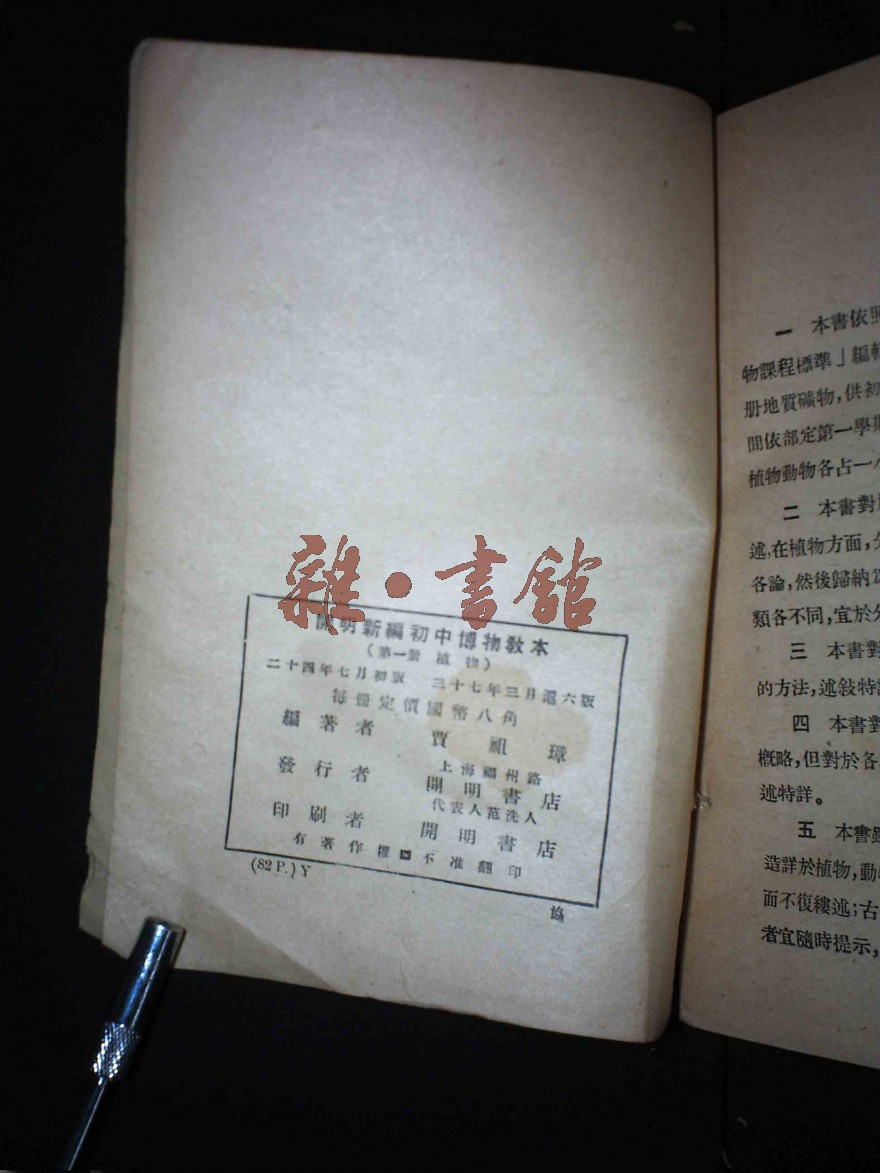 雜·書館
開明新編初中博物教本
(第一册 植物)
二十四年七月初版 三十七年三月滬六版
每冊定價國幣八角
編著者 賈祖璋
發行者 上海福州路
開明書店
代表人范洗人
印刷者 開明書店
有著作權 不准翻印
(82 P.) Y
協
一 本書依照
物課程標準」編輯
册地質礦物，供初
間依部定第一學期
植物動物各占一
二 本書對
述，在植物方面，
各論，然後歸納
類各不同，宜於分
三 本書對
的方法，述敍特
四 本書對
概略，但對於各
述特詳。
五 本書雖
造詳於植物，動
面不復縷述；古
者宜隨時提示，